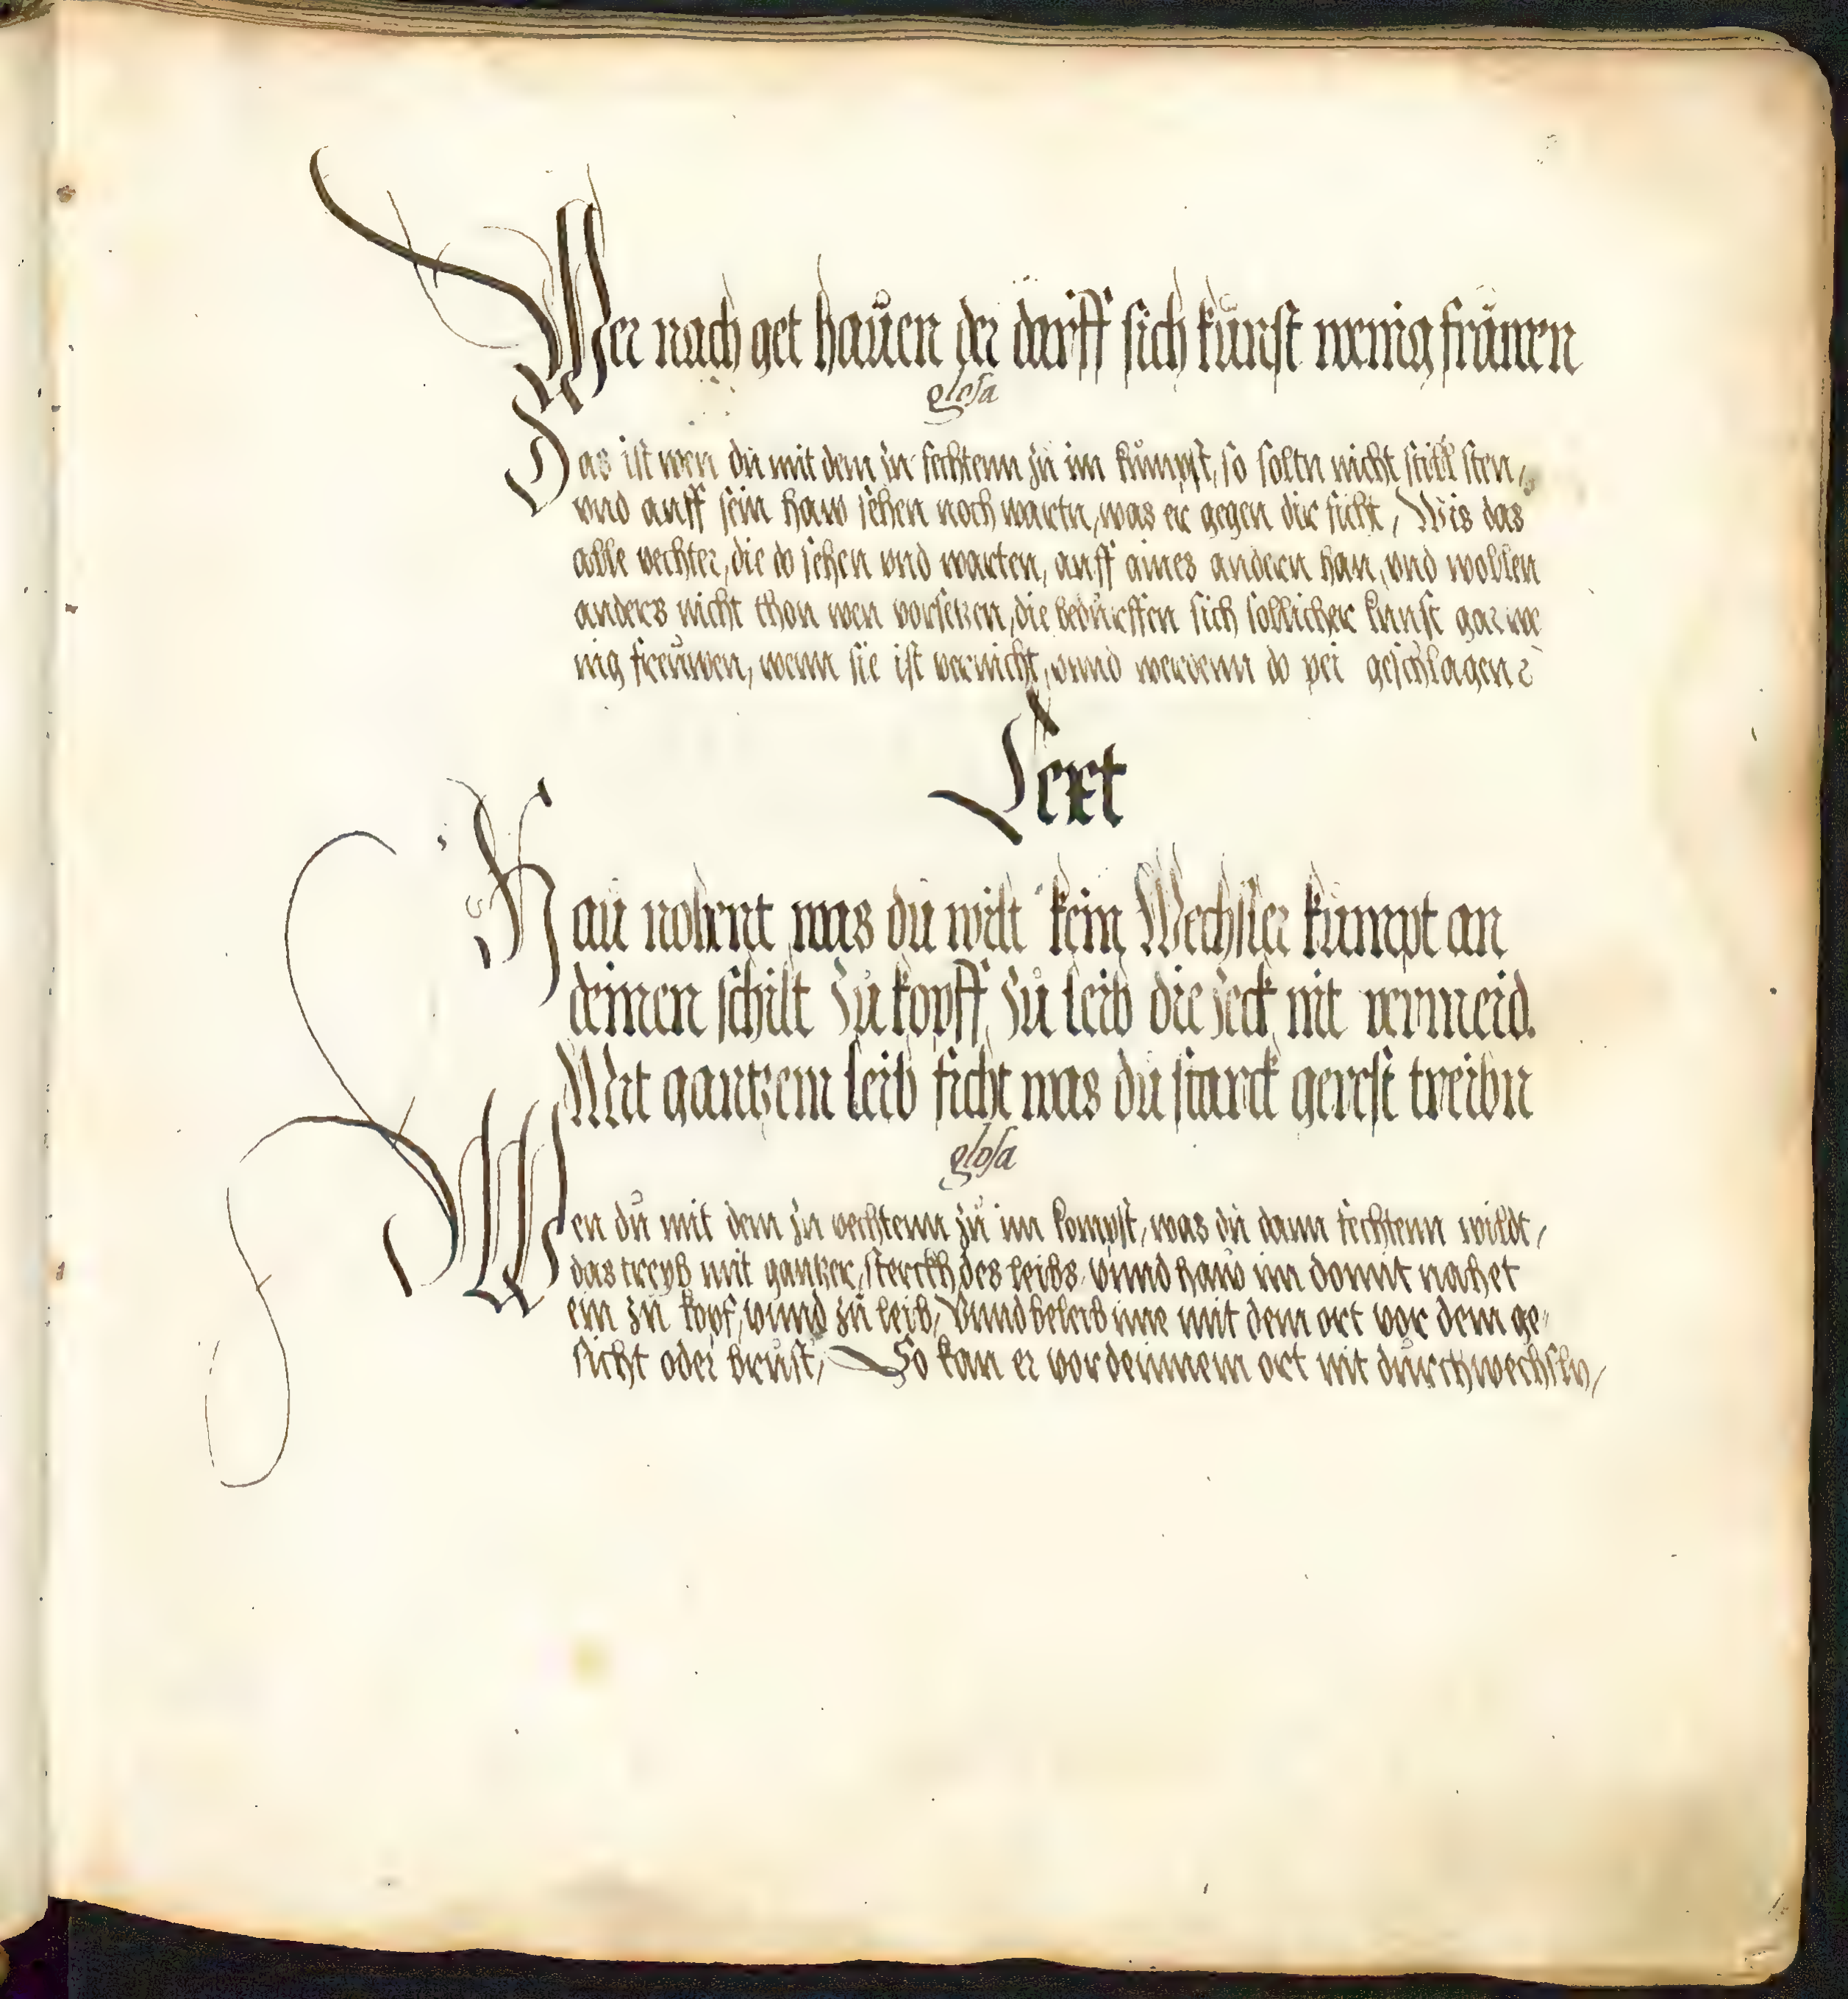 Wer nach get haüen der darff sich künst wenig fräwen
glosa
Das ist wen dü mit dem zu fechtenn zü im kümpst, so soltu nicht still sten,
vnd auff sein haw sehen noch wartn, was er gegen dir ficht, Wis das
alle vechter, die do sehen vnd warten, auff aines andern haw, vnd wollen
anders nicht thon wen vorsetzen, die bedürffen sich sollicher kunst gar we
nig freüwen, wenn sie ist vernicht, vnnd werdenn do pei geschlagen
Text
Hau nohent was du wilt kein Wechsler kümpt an
deinen schilt Zü kopff zü leib die zeck nit vermeid.
Mit gantzem leib ficht was dü starck gerest treibn
glosa
Wen dü mit dem zu vechtenn zü im kompst, was dü dann fechtenn wildt,
das treyb mit gantzer sterckh des leibs vnnd haw im domit nahet
ein zü kopf, vnnd zü leib, Vnnd beleib ime mit dem ort vor dem ge-
sicht oder brüst, So kan er vor deinnem ort nit dürchwechsln,